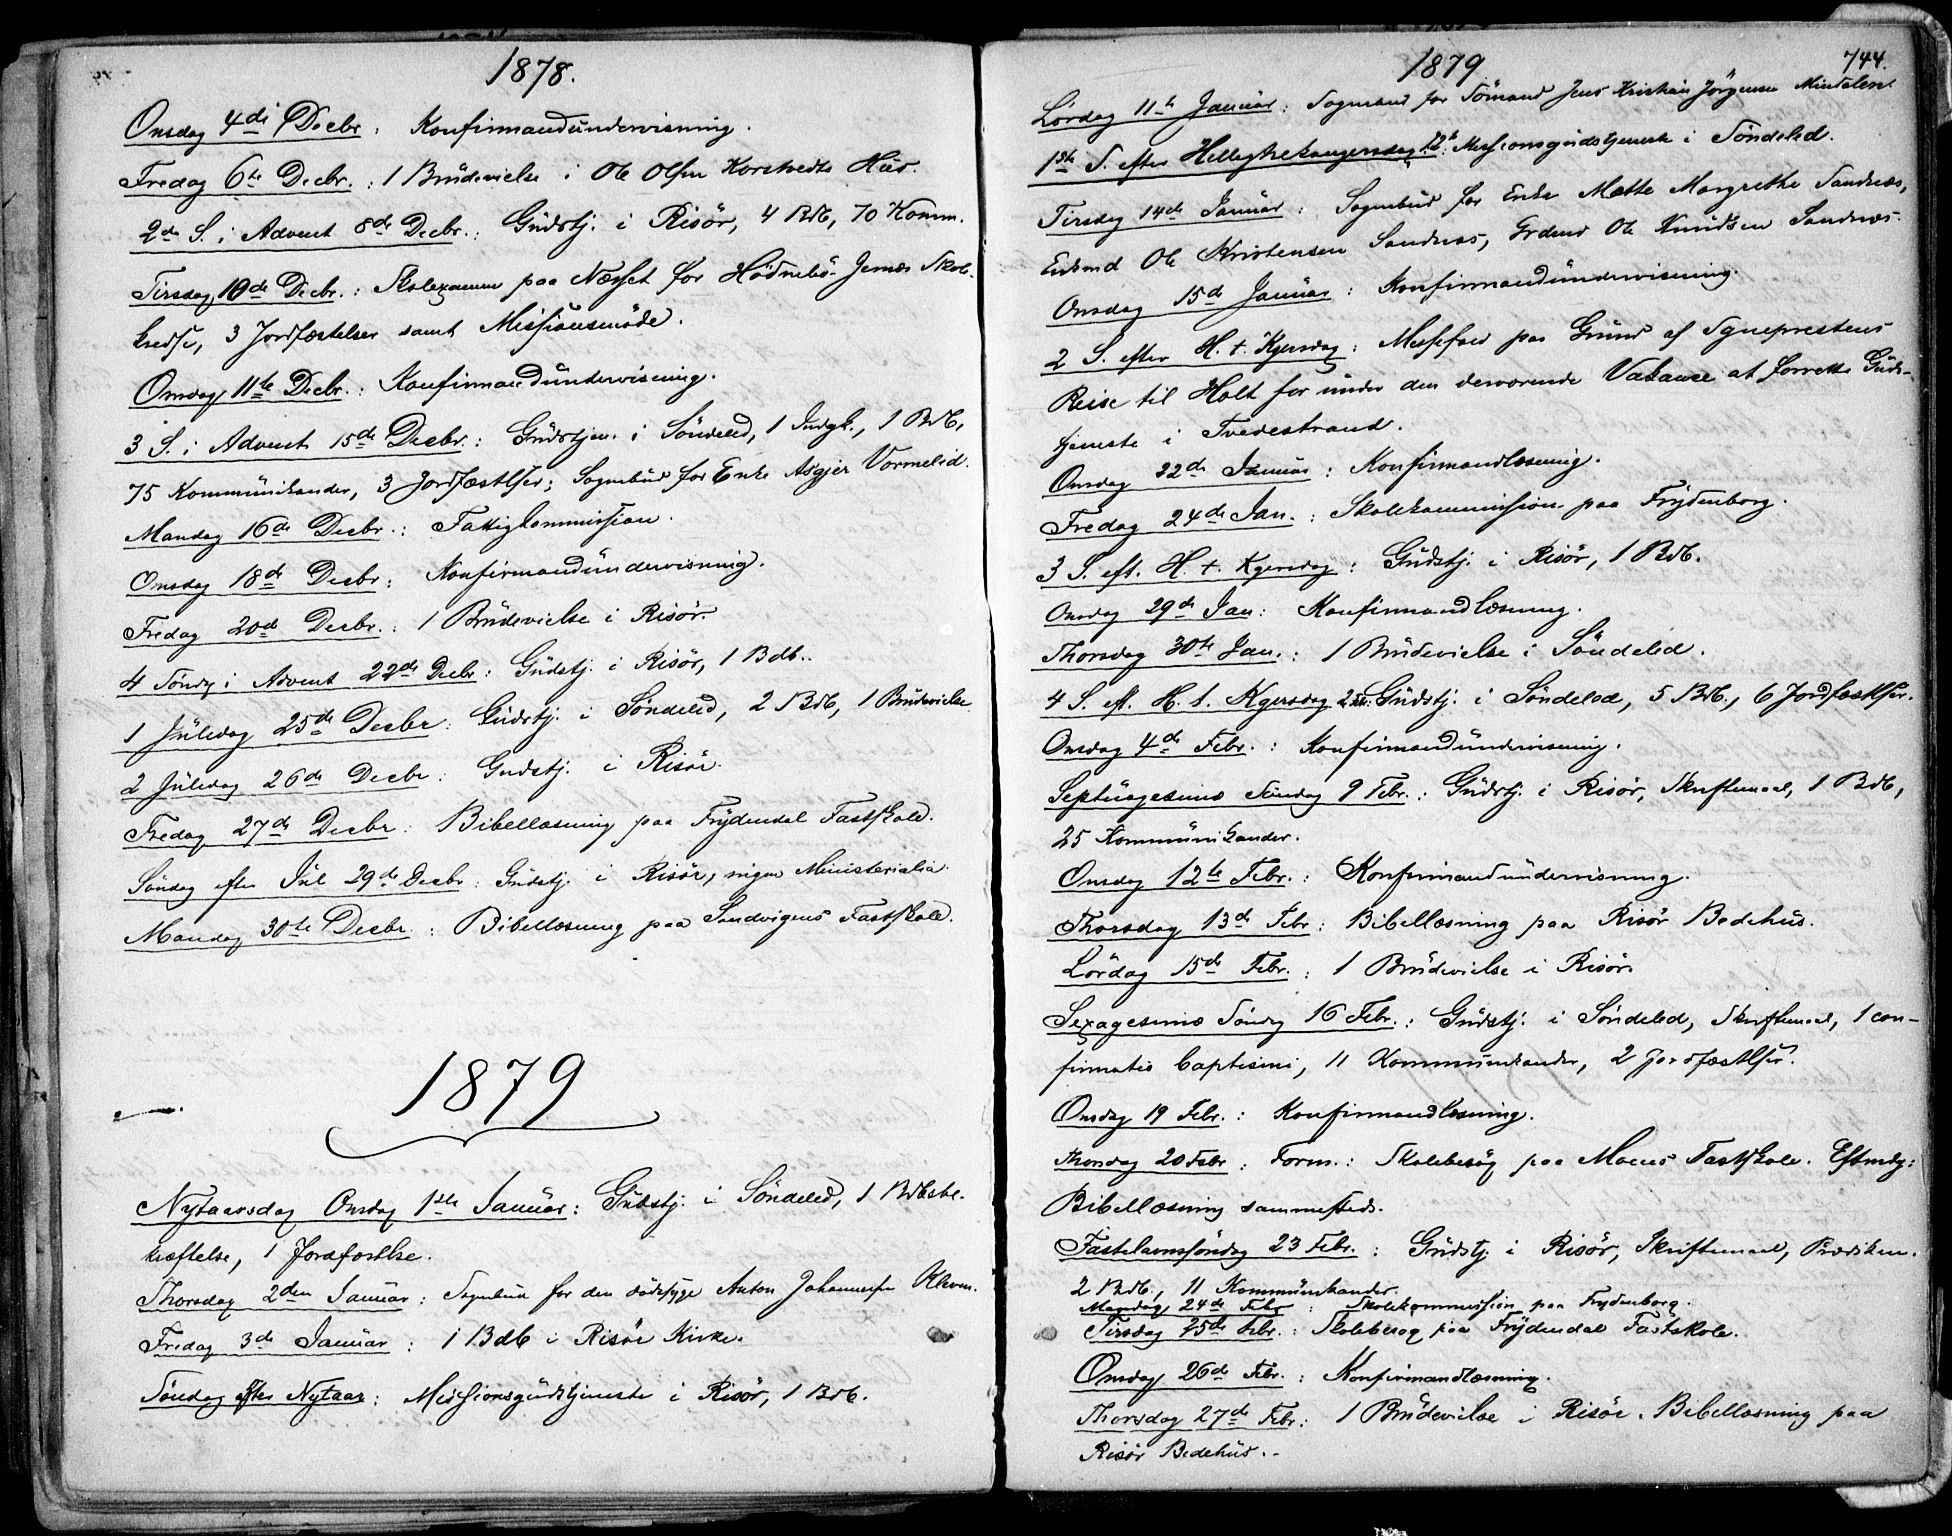 1878.
Onsdag 4de Decbr: Konfirmandundervisning.
Fredag 6te Decbr.: 1 Brudevielse i Ole Olsen Korstvedts Hus.
2de S. i Advent 8de Decbr.: Gudstj. i Risör, 4 Bdb, 70 Komm.
Tirsdag 10de Decbr.: Skolexamen paa Næsset for Hödnebö-Jernæs Skole-
kreds, 3 Jordfæstelser samt Missionsmöde.
Onsdag 11te Decbr.: Konfirmandundervisning.
3 S. i Advent 15de Decbr.: Gudstjen. i Söndeled, 1 Indgk., 1 Bdb,
75 Kommunikander, 3 Jordfæstlser; Sognebud for Enke Asgjer Vormelid.
Mandag 16de Decbr.: Fattigkommission.
Onsdag 18de Decbr: Konfirmandundervisning.
Fredag 20de Decbr.: 1 Brudevielse i Risör.
4 Söndg i Advent 22de Decbr: Gudstj. i Risör, 1 Bdb.
1 Juledag 25de Decbr: Gudstj. i Söndeled, 2 Bdb, 1 Brudevielse
2 Juledag 26de Decbr: Gudstj. i Risör.
Fredag 27de Decbr: Bibellæsning paa Frydendal Fastskole.
Söndag efter Jul 29de Decbr: Gudstj. i Risör, ingen Ministerialia.
Mandag 30te Decbr.: Bibellæsning paa Sandvigens Fastskole.
1879
Nytaarsdag Onsdag 1ste Januar: Gudstj. i Söndeled, 1 Bdbsbe-
kræftelse, 1 Jordfæstlse.
Thorsdag 2den Januar: Sognebud for den dödssyge Anton Johannesen
Fredag 3de Januar: 1 Bdb i Risör Kirke.
Söndag efter Nytaar: Missionsgudstjeneste i Risör, 1 Bdb.
1879
744.
Lördag 11te Januar: Sognebud for Sömand Jens Kristian Jörgensen
1ste S. efter Helligtrekongersdag 12te: Missionsgudstjeneste i Söndeled.
Tirsdag 14de Januar: Sognebud for Enke Mætte Margrethe Sandnæs,
Enkmd Ole Kristensen Sandnæs, Grdmd Ole Knudsen Sandnæs.
Onsdag 15de Januar: Konfirmandundervisning.
2 S. efter H. t. Kgersdag: Messefald paa Grund af Sognepræstens
Reise til Holt for under den derværende Vakance at forrette Guds-
tjeneste i Tvedestrand.
Onsdag 22de Januar: Konfirmandlæsning.
Fredag 24de Jan.: Skolekommission paa Frydenborg.
3 S. eft. H. t. Kgersdag: Gudstj. i Risör, 1 Bdb.
Onsdag 29de Jan: Konfirmandlæsning.
Thorsdag 30te Jan.: 1 Brudevielse i Söndeled.
4 S. eft. H. t. Kgersdag 2de: Gudstj. i Söndeled, 5 Bdb., 6 Jordfæstlser.
Onsdag 4de Febr.: Konfirmandundervisning.
Septuagesima Söndag 9 Febr.: Gudstj. i Risör, Skriftemaal, 1 Bdb,
25 Kommunikander.
Onsdag 12te Febr.: Konfirmandundervisning.
Thorsdag 13de Febr: Bibellæsning paa Risör Bedehus.
Lördag 15de Febr.: 1 Brudevielse i Risör.
Sexagesima Söndg 16 Febr.: Gudstj. i Söndeled, Skriftemaal, 1 con-
firmatio baptismi, 11 Kommunikander, 2 Jordfæstlser.
Onsdag 19 Febr.: Konfirmandlæsning.
Thorsdag 20 Febr: Form.: Skolebesög paa Moens Fastskole. Eftmdg:
Bibellæsning sammesteds.
Fastelavnsöndag 23 Febr.: Gudstj i Risör, Skriftemaal, Prædiken.
2 Bdb., 11 Kommunikander.
Mandag 24de Febr: Skolekommission paa Frydenborg.
Tirsdag 25de Febr.: Skolebesög paa Frydendal Fastskole.
Onsdag 26de Febr.: Konfirmandlæsning.
Thorsdag 27de Febr.: 1 Brudevielse i Risör. Bibellæsning paa
Risör Bedehus.